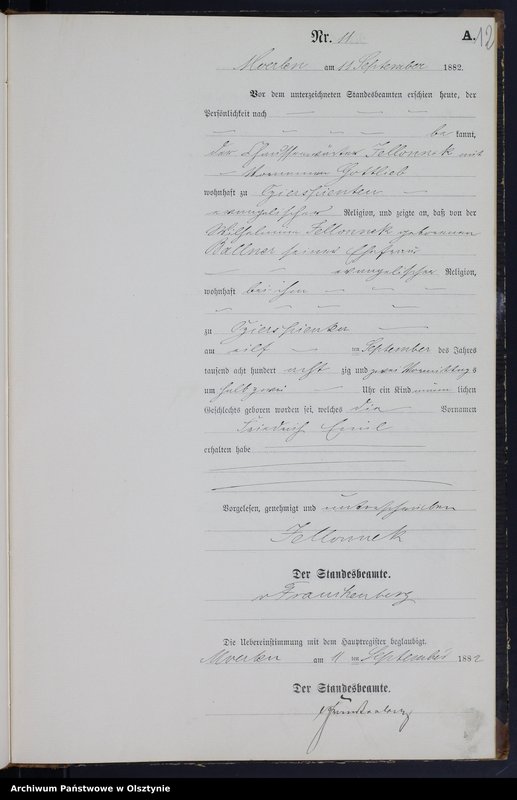 Nr. 11
A. 12
Moerlen am 11 September 1882.
Vor dem unterzeichneten Standesbeamten erschien heute, der
Persönlichkeit nach
be kannt,
der Chausseewärter Jellonnek mit
Vornamen Gottlieb
wohnhaft zu
evangelischer Religion, und zeigte an, daß von der
Wilhelmine Jellonnek geborenen
Ballner seiner Ehefrau
evangelischer Religion,
wohnhaft bei ihm
zu
am eilf ten September des Jahres
tausend acht hundert acht zig und zwei Vormittags
um halb zwei Uhr ein Kind männ lichen
Geschlechts geboren worden sei, welches die Vornamen
Friedrich Emil
erhalten habe
Vorgelesen, genehmigt und unterschrieben
Jellonnek
Der Standesbeamte.
v Frankenberg
Die Uebereinstimmung mit dem Hauptregister beglaubigt.
Moerlen am 11 ten September 1882
Der Standesbeamte.
v Frankenberg
Archiwum Państwowe w Olsztynie